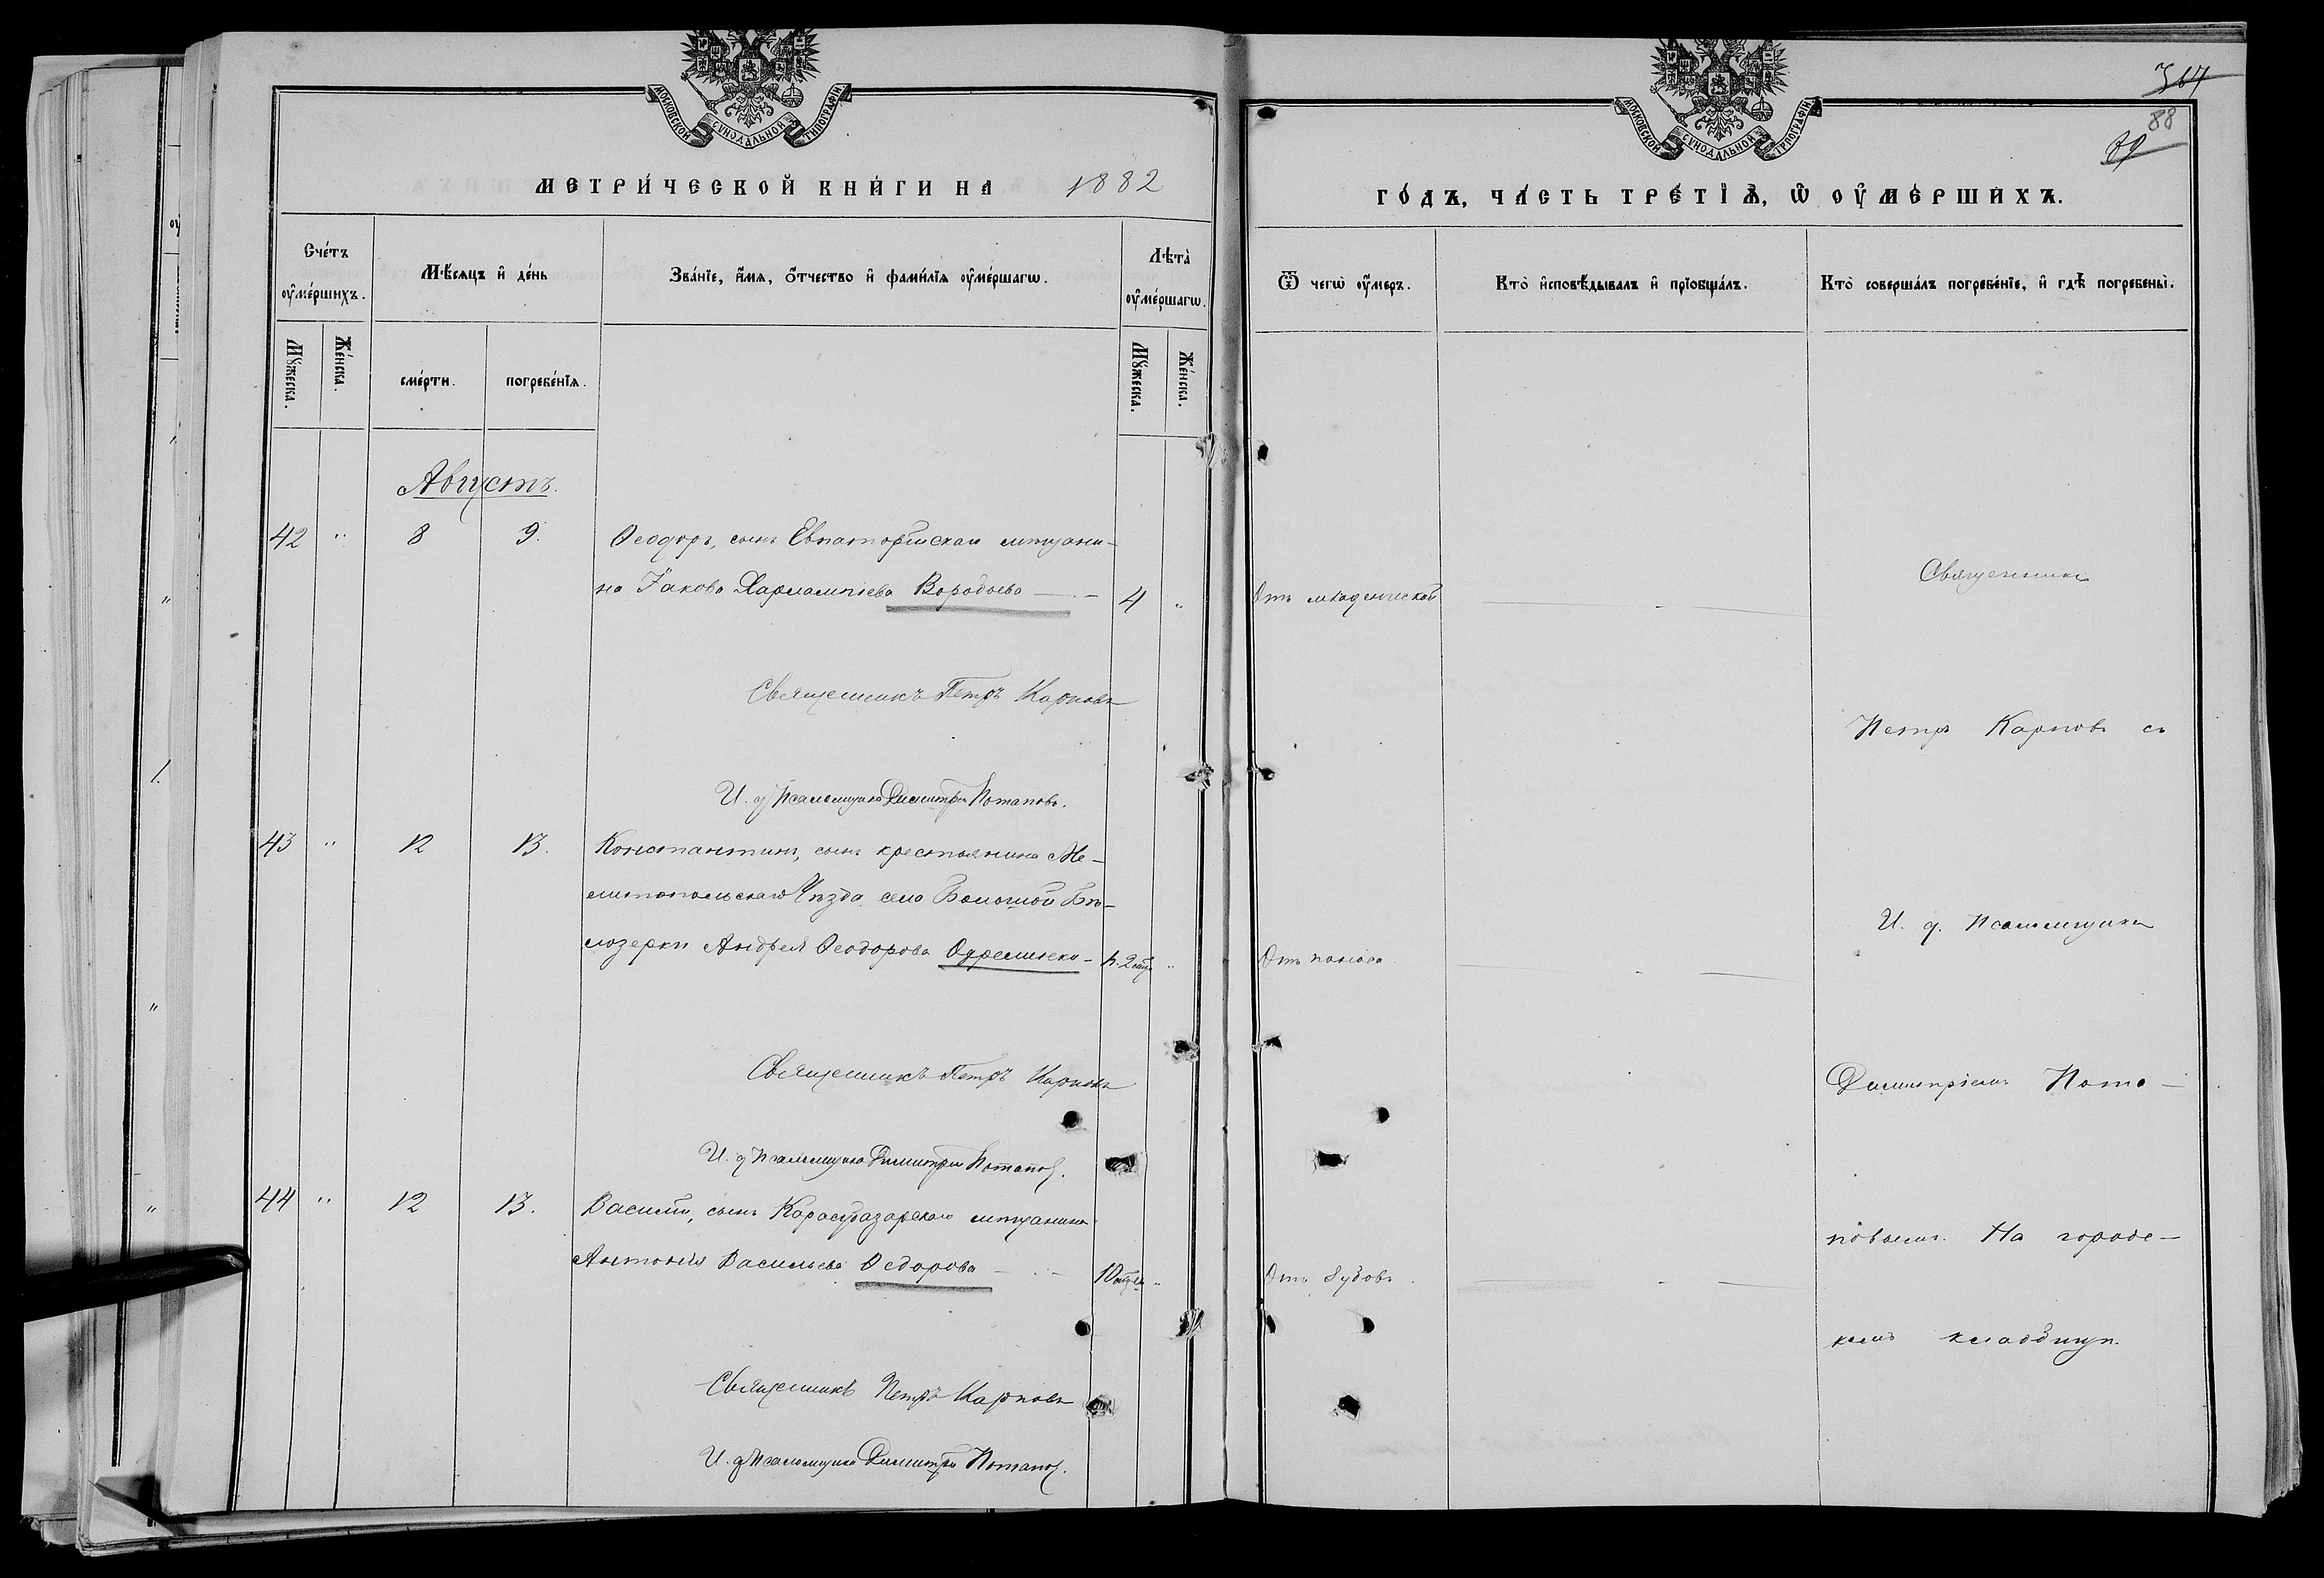 МОСКОВСКОЙ СУНОДАЛЬНОЙ ТИПОГРАФІИ
МЕТРИ́ЧЕСКОЙ КНИ́ГИ НА 1882
Сче́тъ ᲂу҆ме́ршихъ.
Мѣ́сяцъ и҆ де́нь
Зва́нїе, и҆́мя, ѻ҆́тчество и҆ фами́лїя ᲂу҆ме́ршагѡ.
Лѣта̀ ᲂу҆ме́ршагѡ.
Мꙋ́жеска.
Же́нска.
сме́рти.
погребе́нїѧ.
Мꙋ́жеска.
Же́нска.
Августъ.
42 " 8 9. Ѳеодоръ, сынъ Евпаторійскаго мѣщани-
на Іакова Харлампіева Воробьева — 4 "
Священникъ Петръ Карповъ
И. д. Псаломщика Димитрій Потаповъ.
43 " 12 13. Константинъ, сынъ крестьянина Ме-
литопольскаго Уѣзда села Большой Бѣ-
лозерки Андрея Ѳеодорова
Священникъ Петръ Карповъ
И. д. Псаломщика Димитрій Потаповъ.
44 " 12 13. Василій, сынъ Карасубазарскаго мѣщанина
Антонія Васильева Ѳедорова —
Священникъ Петръ Карповъ
И. д. Псаломщика Димитрій Потаповъ.
МОСКОВСКОЙ СУНОДАЛЬНОЙ ТИПОГРАФІИ
88
ГО́ДЪ, ЧА́СТЬ ТРЕ́ТЇѦ, Ѡ҆ ОУ҆МЕ́РШИХЪ.
Ѿ чегѡ̀ ᲂу҆́меръ.
Кто̀ и҆сповѣ́дывалъ и҆ прїобща́лъ.
Кто̀ соверша́лъ погребе́нїе, и҆ гдѣ̀ погребены̀.
Священникъ
Отъ младенческой
Петръ Карповъ съ
И. д. Псаломщика
Отъ поноса
Димитріемъ Пота-
повымъ. На городс-
Отъ зубовъ.
комъ кладбищѣ.